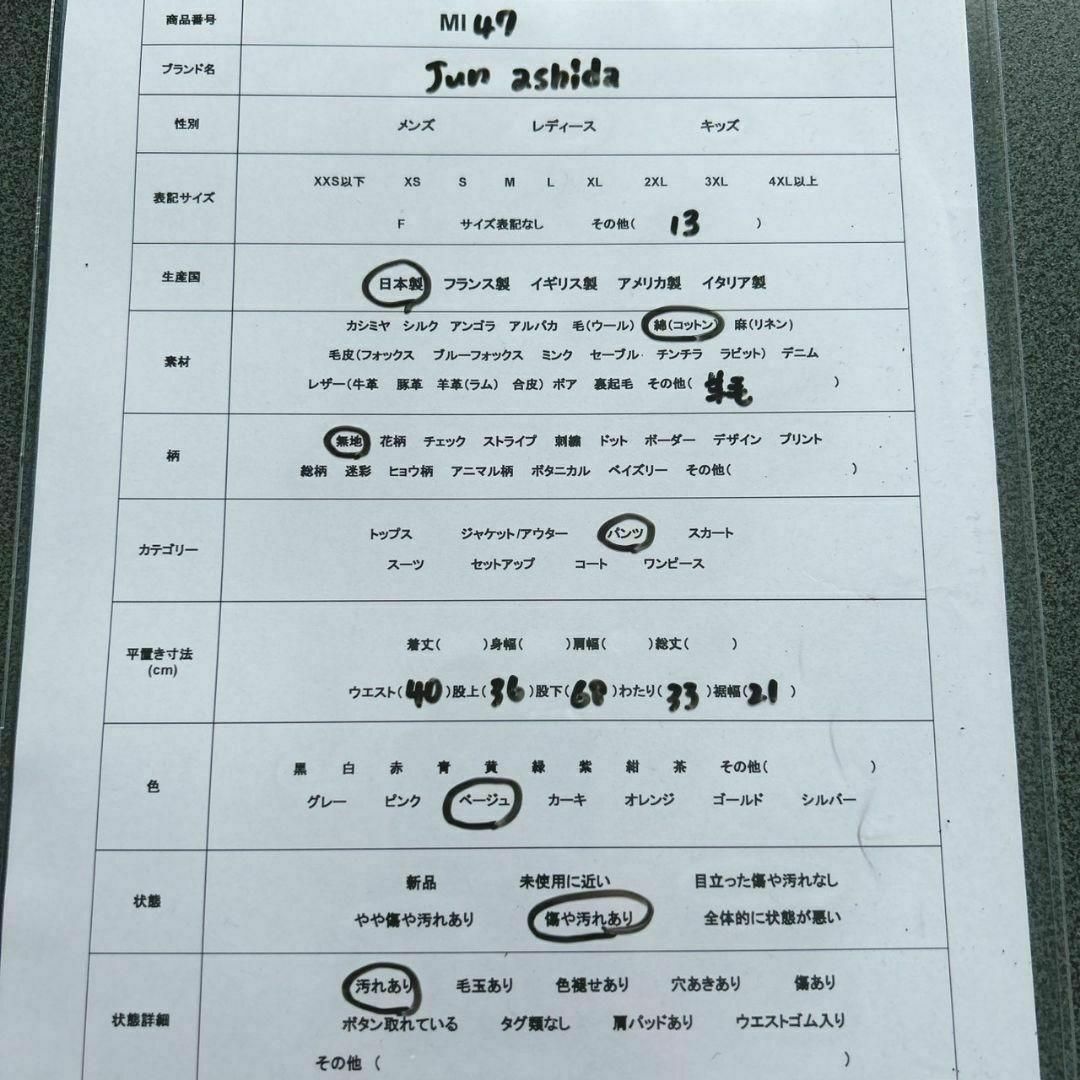 商品番号 MI 47
ブランド名 Jun ashida
性別 メンズ レディース キッズ
XXS以下 XS S M L XL 2XL 3XL 4XL以上
表記サイズ
F サイズ表記なし その他( 13 )
生産国 日本製 フランス製 イギリス製 アメリカ製 イタリア製
カシミヤ シルク アンゴラ アルパカ 毛(ウール) 綿(コットン) 麻(リネン)
素材 毛皮(フォックス ブルーフォックス ミンク セーブル チンチラ ラビット) デニム
レザー(牛革 豚革 羊革(ラム) 合皮) ボア 裏起毛 その他( 毛 )
無地 花柄 チェック ストライプ 刺繍 ドット ボーダー デザイン プリント
柄
総柄 迷彩 ヒョウ柄 アニマル柄 ボタニカル ペイズリー その他( )
トップス ジャケット/アウター パンツ スカート
カテゴリー
スーツ セットアップ コート ワンピース
平置き寸法 着丈( )身幅( )肩幅( )総丈( )
(cm)
ウエスト( 40 )股上( 36 )股下( 68 )わたり( 33 )裾幅( 21 )
黒 白 赤 青 黄 緑 紫 紺 茶 その他( )
色
グレー ピンク ベージュ カーキ オレンジ ゴールド シルバー
新品 未使用に近い 目立った傷や汚れなし
状態
やや傷や汚れあり 傷や汚れあり 全体的に状態が悪い
汚れあり 毛玉あり 色褪せあり 穴あきあり 傷あり
状態詳細 ボタン取れている タグ類なし 肩パッドあり ウエストゴム入り
その他 ( )